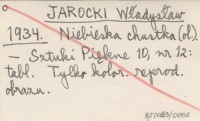 JAROCKI Władysław
1934. Niebieska chustka (ol.)
— Sztuki Piękne 10, nr 12:
tabl. Tylko kolor. reprod.
obrazu.